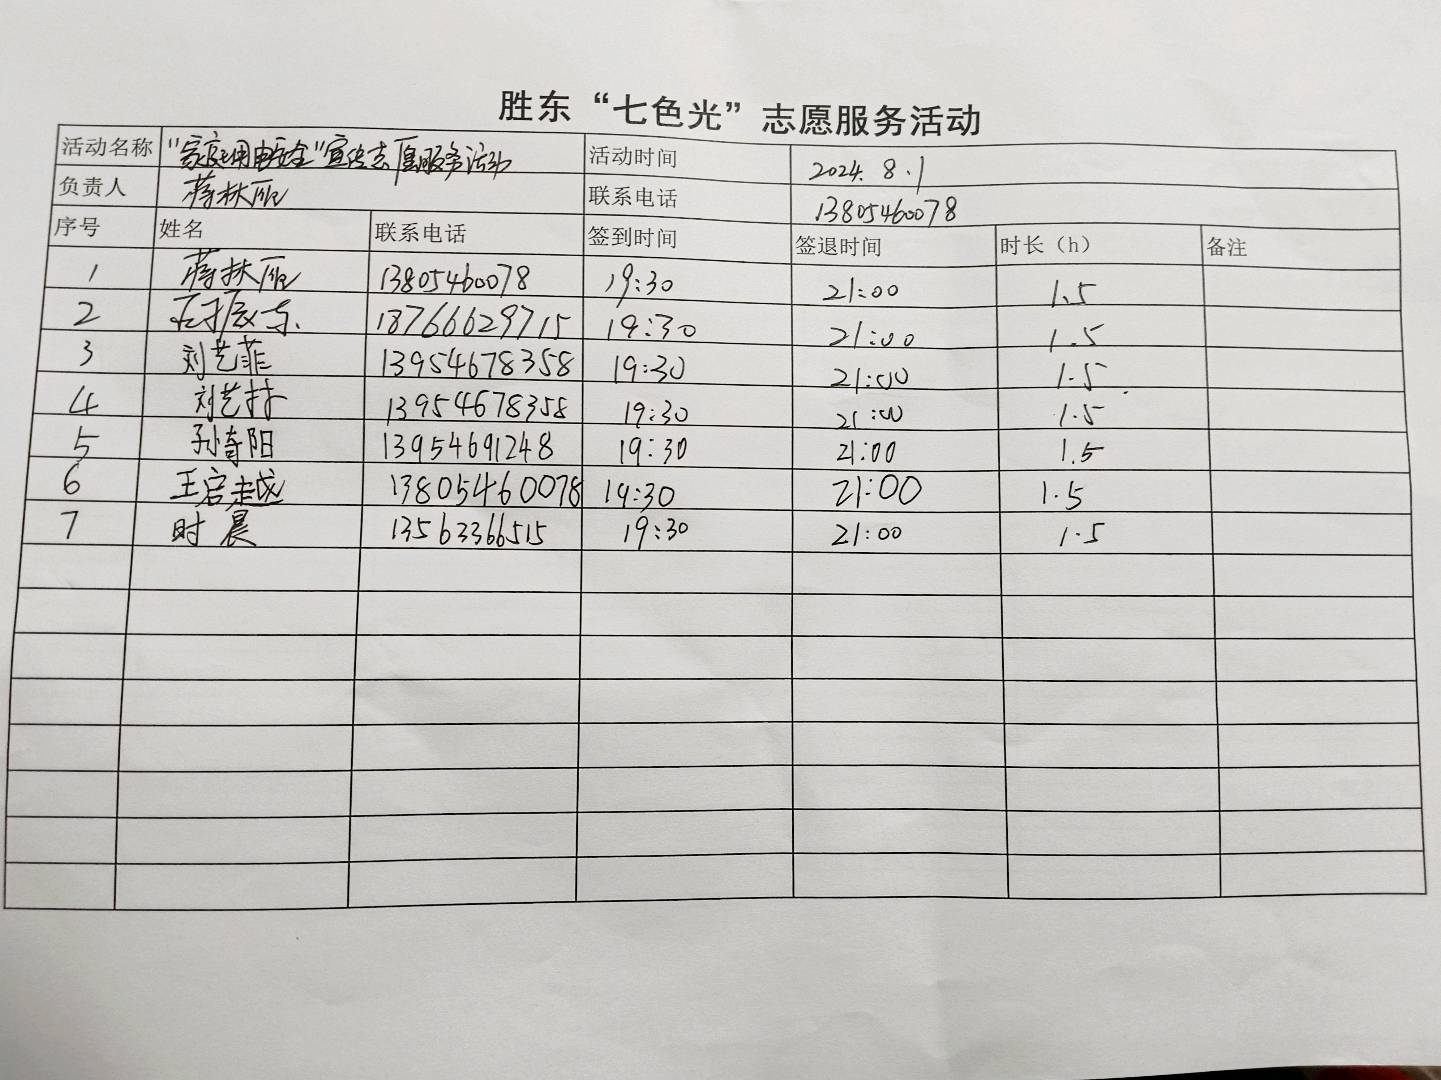 胜东“七色光”志愿服务活动
活动名称 “家庭用电安全”宣传志愿服务活动 活动时间 2024.8.1
负责人 蒋扶 联系电话 13805460078
序号 姓名 联系电话 签到时间 签退时间 时长（h） 备注
1 蒋扶 13805460078 19:30 21:00 1.5
2 石振东 18766629715 19:30 21:00 1.5
3 刘艺菲 13954678358 19:30 21:00 1.5
4 刘艺 13954678358 19:30 21:00 1.5
5 孙 阳 13954691248 19:30 21:00 1.5
6 王启越 13805460078 19:30 21:00 1.5
7 时晨 13563366515 19:30 21:00 1.5